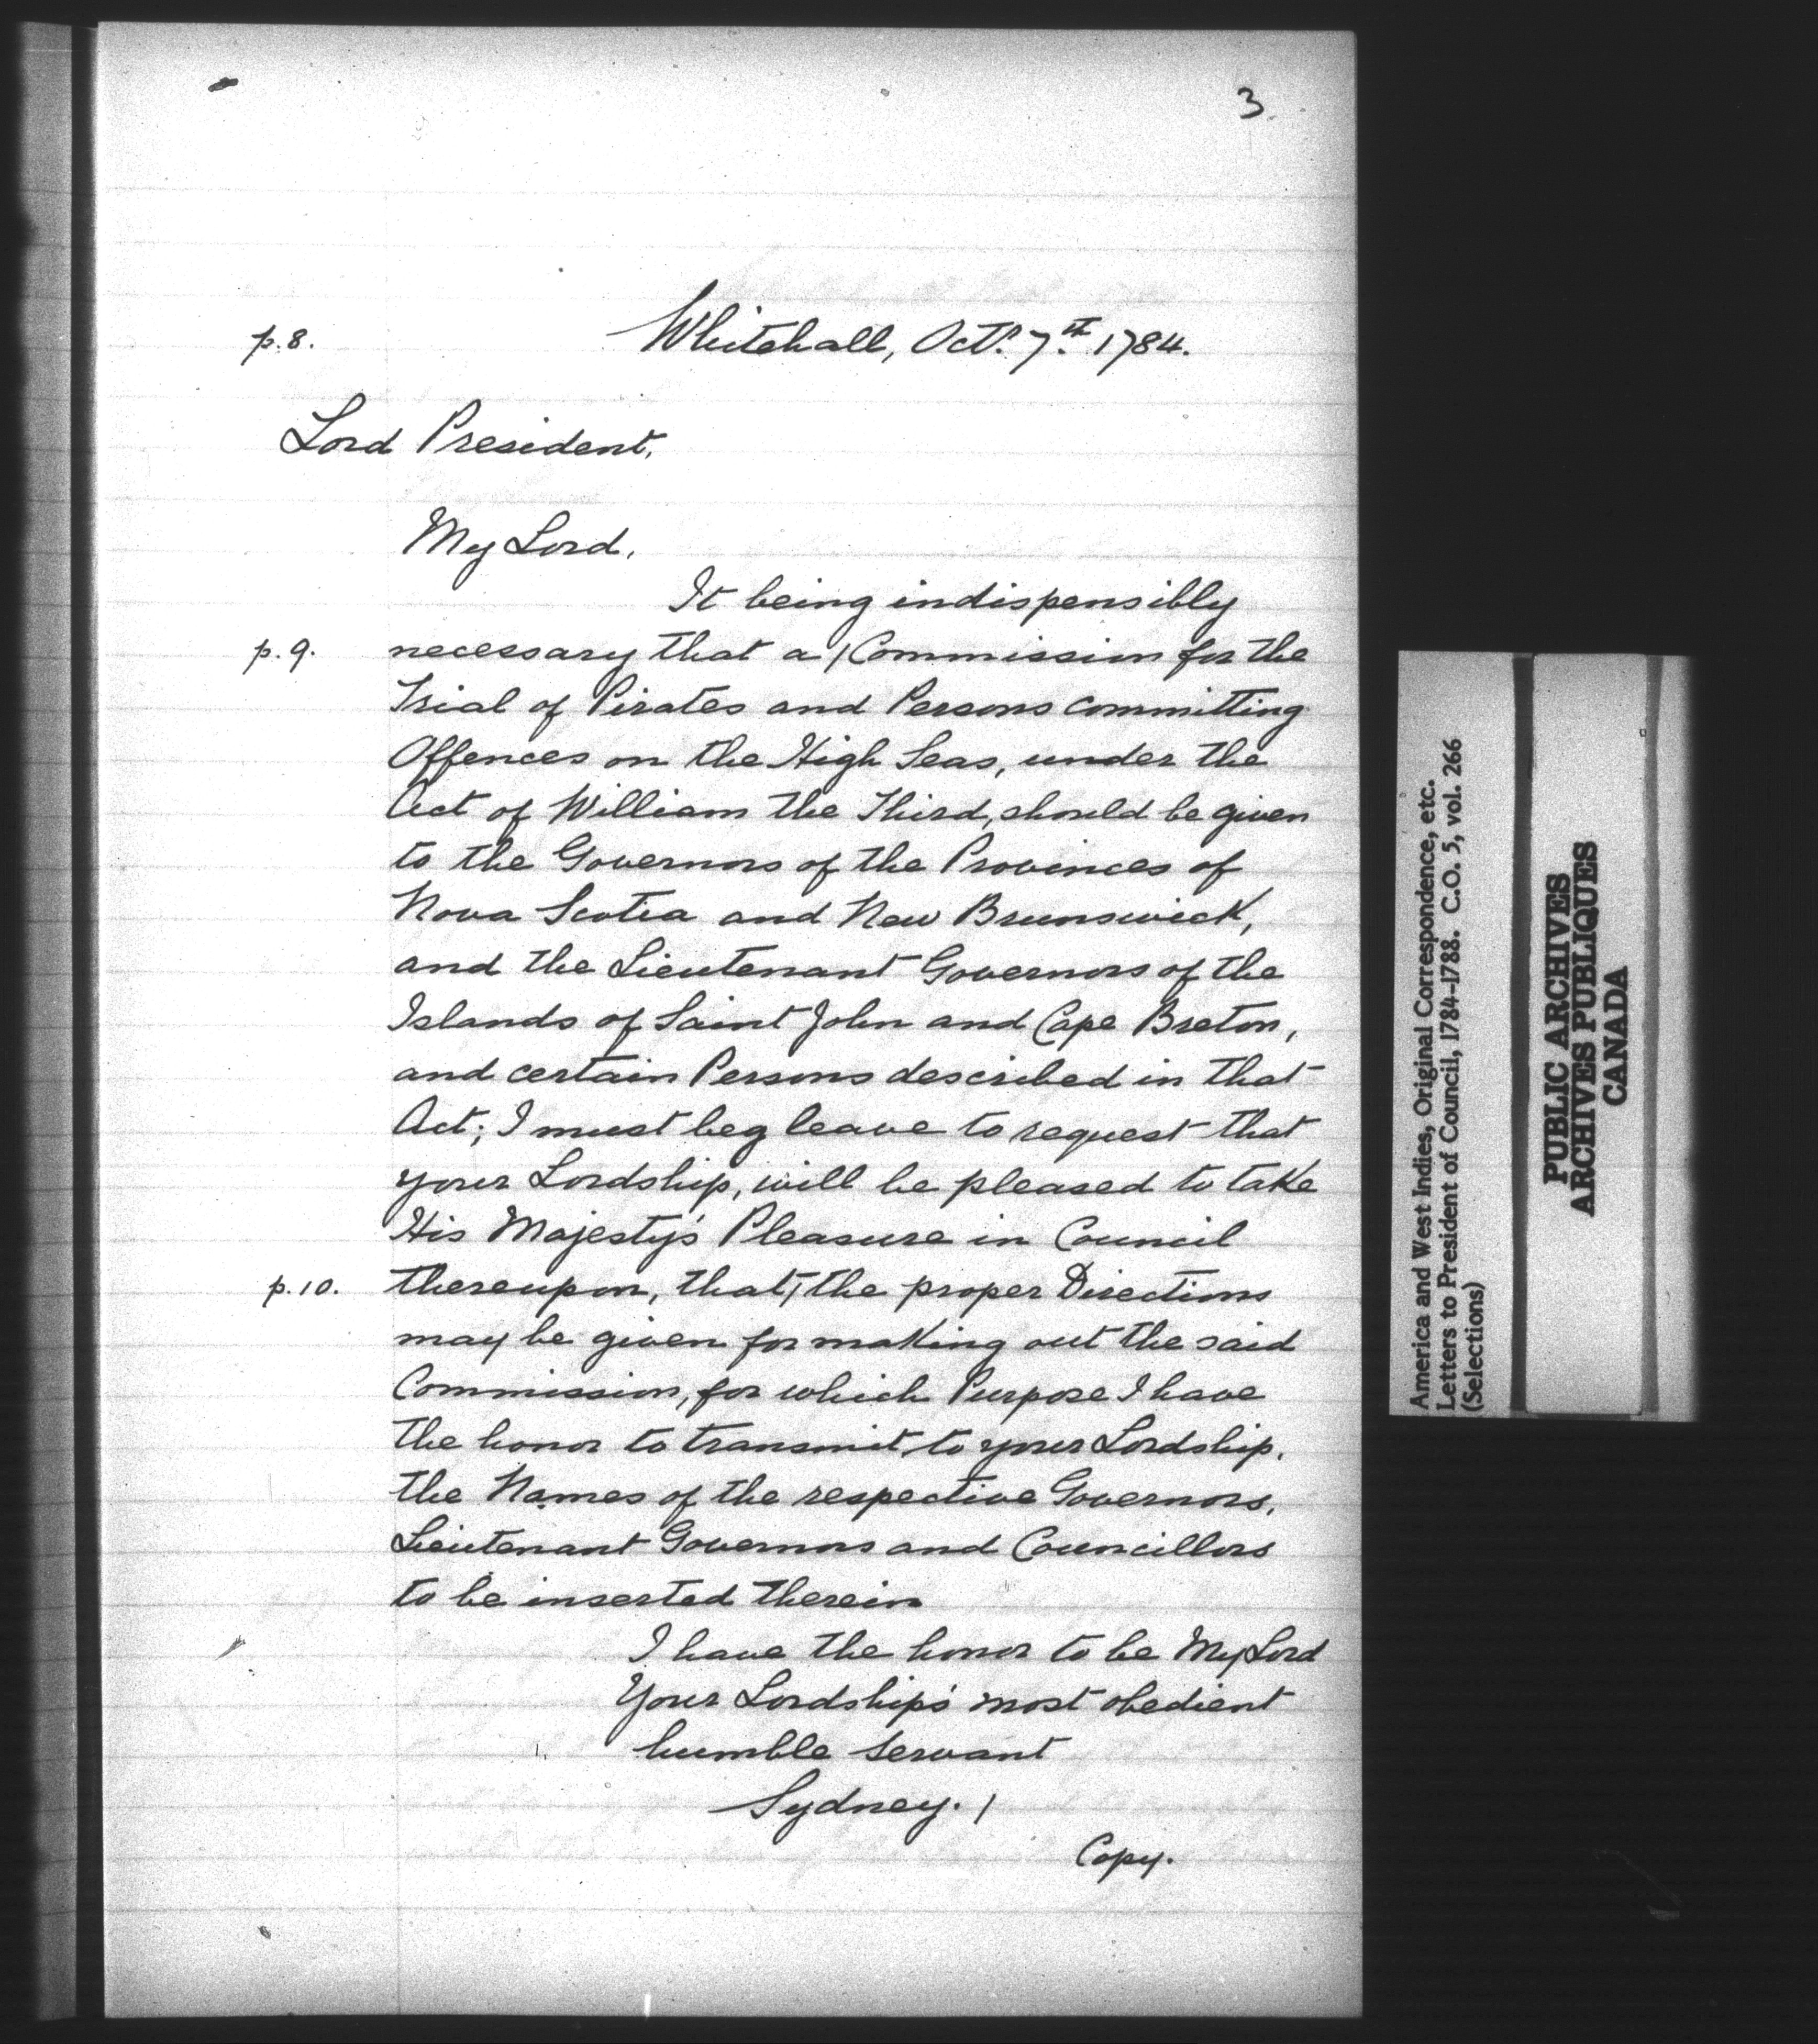 3
p.8. Whitehall, Octr. 7th. 1784.
Lord President,
My Lord,
It being indispensibly
p.9. necessary that a / Commission for the
Trial of Pirates and Persons committing
Offences on the High Seas, under the
Act of William the Third, should be given
to the Governors of the Provinces of
Nova Scotia and New Brunswick,
and the Lieutenant Governors of the
Islands of Saint John and Cape Breton,
and certain Persons described in that
Act; I must beg leave to request that
your Lordship, will be pleased to take
His Majesty's Pleasure in Council
p.10. thereupon, that / the proper Directions
may be given for making out the said
Commission, for which Purpose I have
the honor to transmit to your Lordship,
the Names of the respective Governors,
Lieutenant Governors and Councillors
to be inserted therein
I have the honor to be My Lord
Your Lordship's most obedient
humble Servant
Sydney. /
Copy.
America and West Indies, Original Correspondence, etc.
Letters to President of Council, 1784-1788. C.O. 5, vol. 266
(Selections)
PUBLIC ARCHIVES
ARCHIVES PUBLIQUES
CANADA